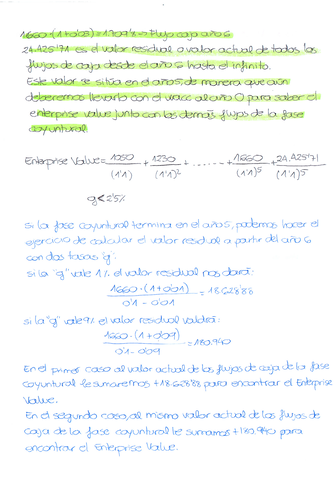 1.660·(1+0'03)=1.709'8 → Flujo caja año 6
24.425'71 es el valor residual o valor actual de todos los
flujos de caja desde el año 6 hasta el infinito.
Este valor se sitúa en el año 5 de manera que aún
deberemos llevarlo con el wacc al año 0 para saber el
enterprise value junto con los demás flujos de la fase
coyuntural.
Enterprise Value = 1050/(1'1) + 1230/(1'1)² + ...... + 1660/(1'1)⁵ + 24.425'71/(1'1)⁵
g<2'5%
si la fase coyuntural termina en el año 5, podemos hacer el
ejercicio de calcular el valor residual a partir del año 6
con dos tasas "g":
si la "g" vale 1% el valor residual nos dará:
1660·(1+0'01)/0'1-0'01 = 18.628'88
si la "g" vale 9% el valor residual valdrá:
1660·(1+0'09)/0'1-0'09 = 180.940
En el primer caso al valor actual de los flujos de caja de la fase
coyuntural le sumaremos +18.628'88 para encontrar el Enterprise
Value.
En el segundo caso, al mismo valor actual de los flujos de
caja de la fase coyuntural le sumamos +180.940 para
encontrar el Enterprise Value.